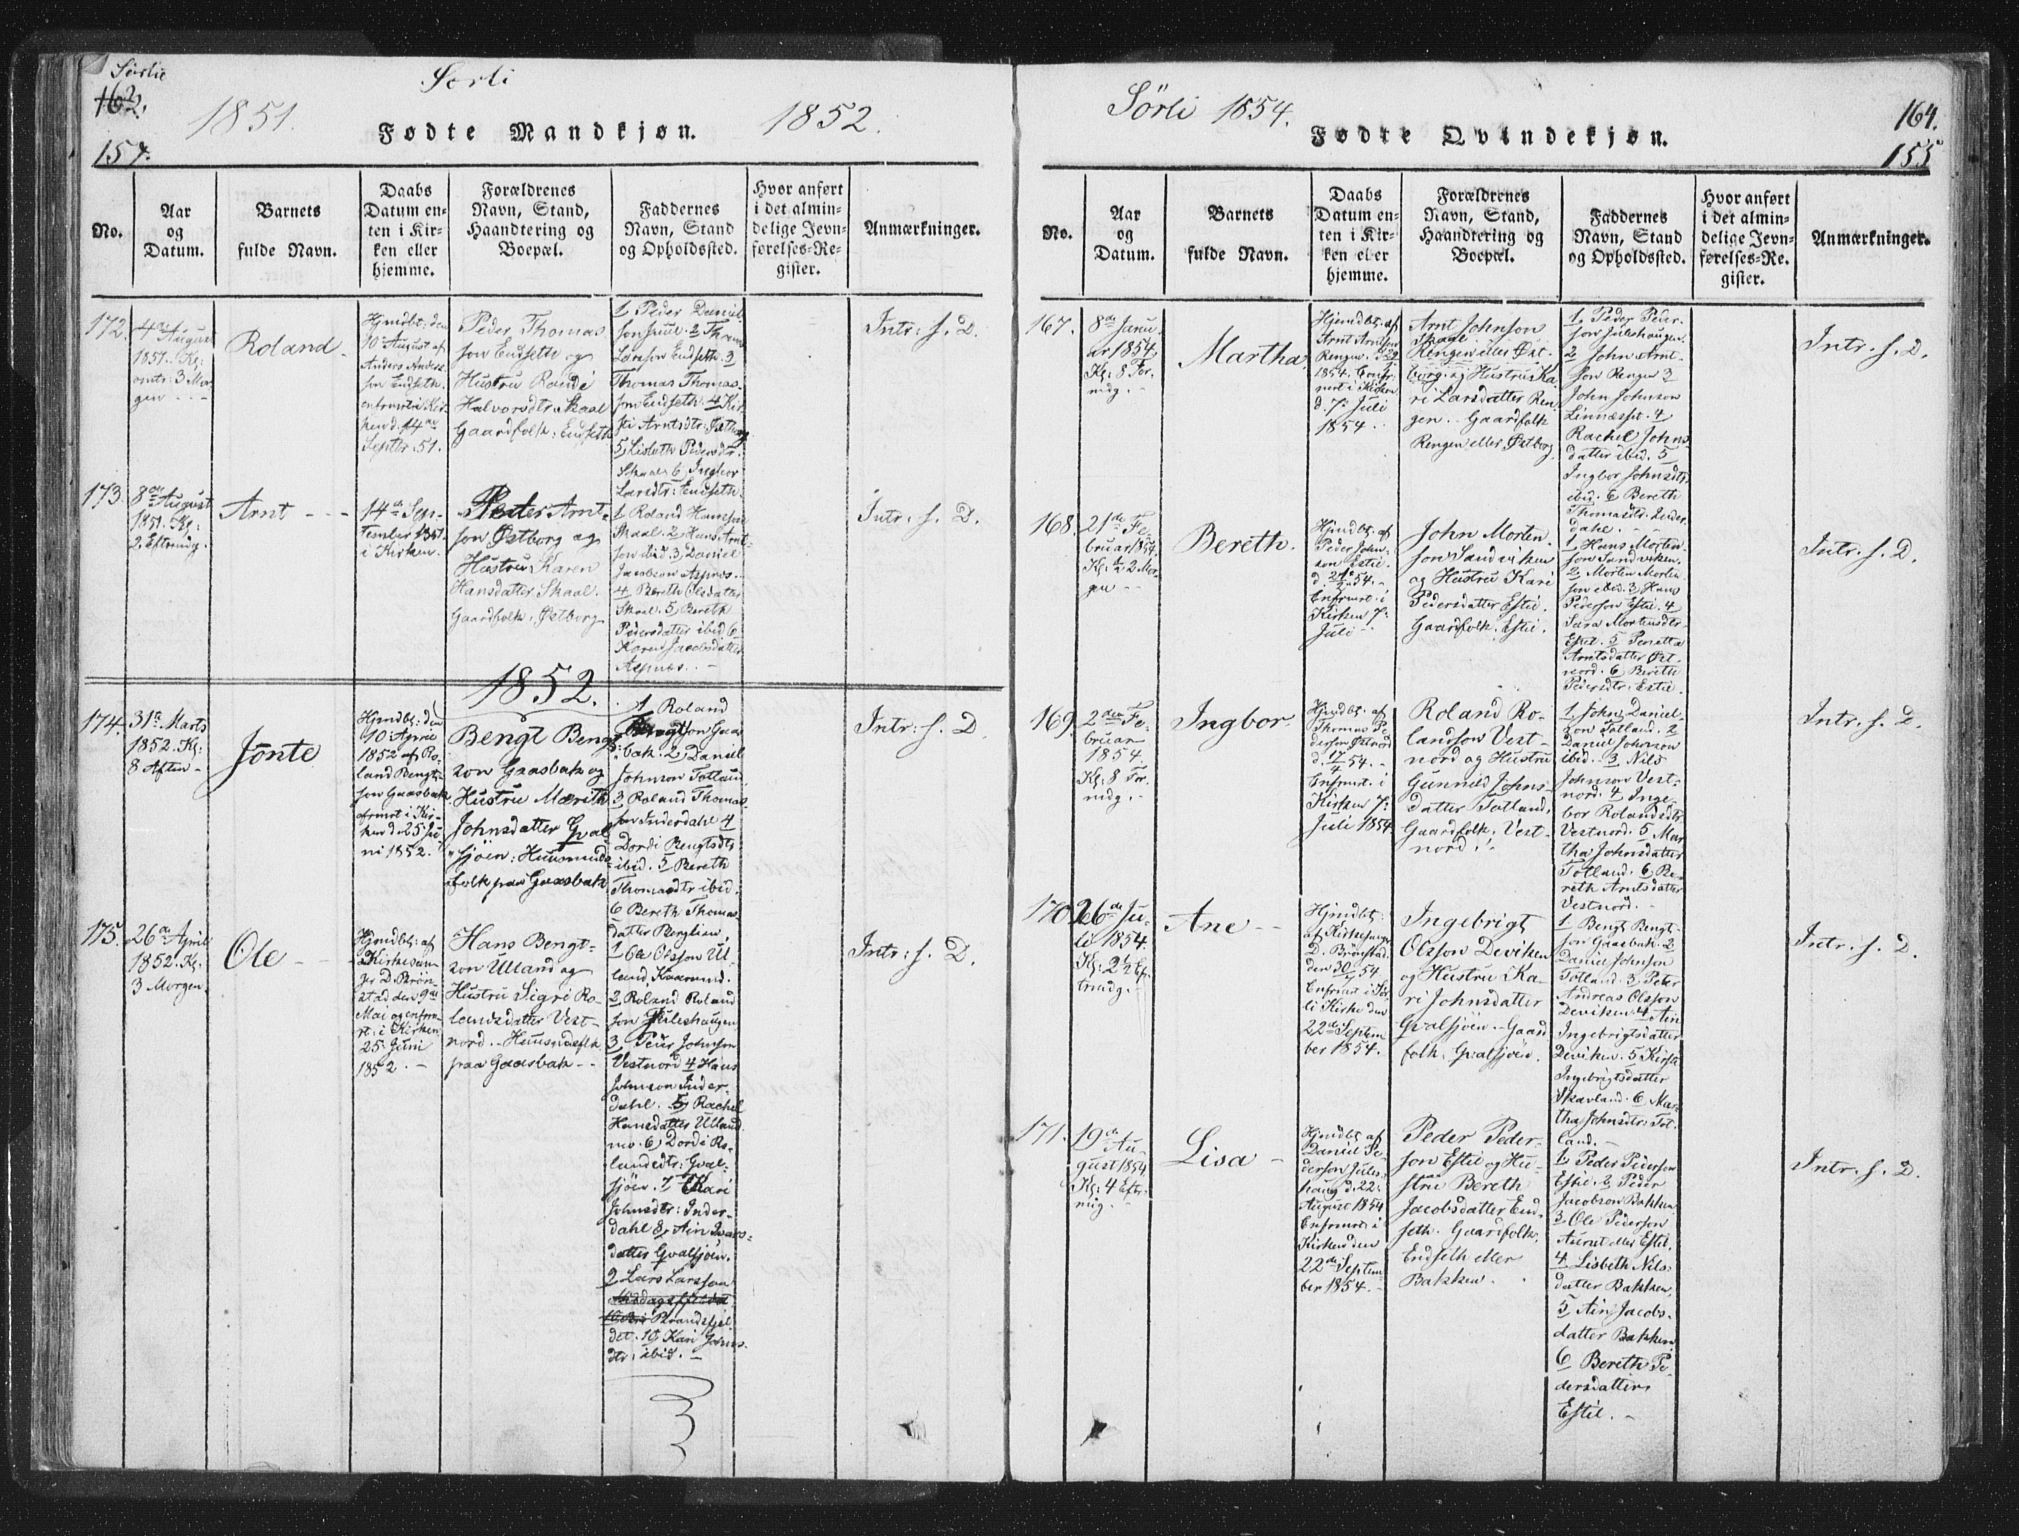 Sørlie
162.
1851.
Sørli
Fødte Mandkjøn.
1852.
154.
No.
Aar
og
Datum.
Barnets
fulde Navn.
Daabs
Datum en-
ten i Kir-
ken eller
hjemme.
Forældrenes
Navn, Stand,
Haandtering og
Boepæl.
Faddernes
Navn, Stand
og Opholdssted.
Hvor anført
i det almin-
delige Jevn-
førelses-Re-
gister.
Anmærkninger.
172.
4de August
1851. Kl:
omtr: 3 Mor-
gen
Roland.
Hjmdbt: den
10 August af
Anders Anders-
son Endseth.
enfrmrt i Kir-
ken d. 14de
Septbr 51.
Peder Thomas
son Endseth og
Hustru
Halvorsdtr: Skaal
Gaardfolk: Endseth
1. Peder Daniel
son Juul. 2 Thomas
Larsson Endseth. 3
Thomas Thomas-
son Endseth. 4
Arntsdtr: Østborg
5, Lisbeth Pedersdtr:
Skaal 6, Ingbor
Larsdtr: Endseth.
Intr: f. D.
173.
8de August
1851. Kl:
2. Eftrmdg.
Arnt
14de Sep-
tember 1851
i Kirken.
Peder Arnt-
son Østborg og
Hustru Karen
Hansdatter Skaal.
Gaardfolk: Østborg
1. Roland Hansson
Skaal. 2 Hans Arnt-
son ibid. 3, Daniel
Jacobson Aspnes.
4 Bereth Olsdatter
Skaal. 5, Bereth
Pedersdatter ibid. 6
Karen Jacobsdatter
Aspnæs.
Intr: f. D.
1852.
174.
31te Marts
1852. Kl:
8 Aften
Jonte
Hjmdbt: den
10: April
1852 af Ro-
land Bengt-
son Gaasbak
efrmrt i Kir-
ken d. 25 Ju-
ni 1852.
Bengt Bengt
son Gaasbak og
Hustru Mereth
Johnsdatter Qval
sjøen: Huusmands-
folk paa Gaasbak.
1 Roland
Bengtson Gaas
bak. 2, Daniel
Johnson Totland
3, Roland Thomas-
son Inderdahl 4
Dordi Bengtsdtr
ibid. 5 Bereth
Thomasdtr ibid.
6 Bereth Thomas-
datter Berglien.
Intr: f. D.
175.
26de April
1852. Kl.
3 Morgen.
Ole
Hjmdbt: af
Kirkesan-
ger D. Brøn-
stad den 9de
Mai og enfrm-
rt: i Kirken
25. Juni
1852.
Hans Bengt-
son Ulland og
Hustru Sigri Ro-
landsdatter Vest-
nord. Huusmdsflk
paa Gaasbak
1 Ole Olsson Ul-
land,
2, Roland Roland
son Juleshaugen
3 Peter Johnson
Vestnord 4 Hans
Johnson Inder-
dahl. 5, Rachel
Hansdatter Ulland
mo. 6, Dordi Ro-
landsdtr: Qval-
sjøen. 7 Kari
Johnsdtr: Inder-
dahl 8, Ain
datter Qvalsjøen.
9 Lars Larsson
Brandsfjel-
det. 10 Kari Johns-
dtr: ibid.
Intr: f. D.
Sørli 1854.
164.
Fødte Qvindekjøn.
155
No.
Aar
og
Datum.
Barnets
fulde Navn.
Daabs
Datum en-
ten i Kir-
ken eller
hjemme.
Forældrenes
Navn, Stand,
Haandtering og
Boepæl.
Faddernes
Navn, Stand
og Opholdssted.
Hvor anført
i det almin-
delige Jevn-
førelses-Re-
gister.
Anmærkninger.
167.
8de Janu
ar 1854
Kl: 8 For-
mdg.
Martha
Hjmdbt: af
Arnt Arntson
Rengen.
1854. Enfr-
mrt i Kirken
d. 7: Juli
1854.
Arnt Johnson
Skaal
Rengen eller Øst-
borg. og Hustru Ka-
ri Larsdatter Ren-
gen. Gaardfolk
Rengen eller Østborg
1. Peder Peder-
son Juleshaugen.
2 John Arnt-
son Rengen 3
John Johnson
Linnæsset. 4
Rachel Johns
datter ibid. 5
Ingbor Johnsdtr
ibid. 6 Bereth
Thomasdtr: Leder-
dahl.
Intr. f. D.
168.
21de Fe-
bruar 1854.
Kl: 2 Mor-
gen
Bereth.
Hjmdbt: af
Peder John-
son Estil
d.
54.
Enfrmrt. i
Kirken 7:
Juli
John Morten-
son Sandviken
og Hustru Kari
Pedersdatter Estil.
Gaardfolk. Estil.
1 Hans Morten-
son Sandviken.
2 Morten Morten-
son ibid. 3 Hans
Pederson Estil. 4
Sara Mortensdtr
Estil. 5 Peretta
Arntsdatter Øst-
nord. 6 Bereth
Pedersdtr: Estil.
Intr. f. D.
169.
2den Fe-
bruar
1854.
Kl: 8 For
mdg.
Ingbor
Hjmdbt: af
Thomas Pe
derson Østnord
d. 17/4 54.
Enfrmrt. i
Kirken 7:
Juli 1854
Roland Ro-
landson Vest-
nord og Hustru
Gunnild Johns-
datter Totland.
Gaardfolk: Vest-
nord.
1, John Daniel-
son Totland. 2
Daniel Johnson
ibid. 3 Nils
Johnson Vest-
nord. 4 Inge-
bor Rolandsdtr
Vestnord. 5 Mar-
tha Johnsdatter
Totland. 6, Be-
reth Arntsdatter
Vestnord.
Intr. f. D.
170.
26de Ju-
li 1854.
Kl: 2½ Ef-
trmdg.
Ane
Hjmdbt:
af Kirkesanger
D. Brønstad
den 30/7 54
Enfrmrt i Sør-
li Kirke den
22de Septem
ber 1854.
Ingebrigt
Olsson Deviken
og Hustru Ka-
ri Johnsdatter
Qvalsjøen. Gaard
folk: Qvalsjøen.
1 Bengt Bengt-
son Gaasbak. 2
Daniel Johnson
Totland. 3, Peter
Andreas Olsson
Deviken. 4 Ain
Ingebrigtsdatter
Deviken. 5 Kirsti
Ingebrigtsdatter
Skavland. 6 Mar
tha Johnsdtr: Tot-
land.
Intr. f. D.
171.
19de Au-
gust 1854
Kl: 4 Eftr
mdg.
Lisa
Hjmdbt: af
Daniel Pe-
derson Jules-
haug d. 22:
August 1854
Enfrmrt i
Kirken den
22de Septem-
ber 1854.
Peder Peder-
son Estil og Hu-
stru Bereth
Jacobsdatter End-
seth. Gaardfolk,
Endseth eller
Bakken.
1, Peder Pederson
Estil. 2 Peder
Jacobson Bakken
3 Ole Pederson
Aunet eller Estil.
4 Lisbeth Nils-
datter Bakken,
5 Ain Jacobs-
datter Bakken
6 Bereth Pe-
dersdatter
Estil.
Intr. f. D.